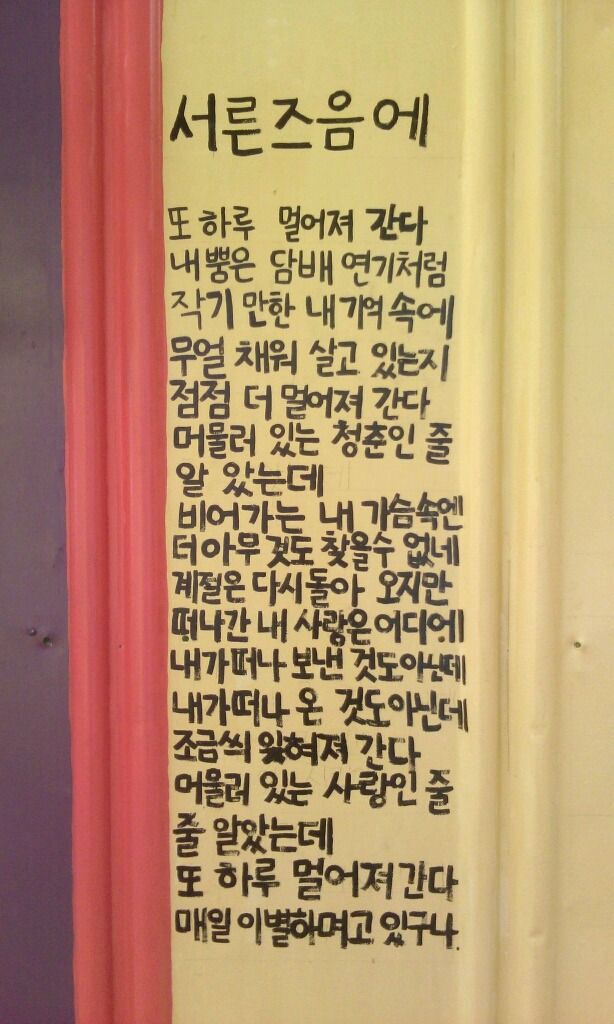 서른즈음에
또 하루 멀어져 간다
내뿜은 담배 연기처럼
작기 만한 내 기억 속에
무얼 채워 살고 있는지
점점 더 멀어져 간다
머물러 있는 청춘인 줄
알 았는데
비어가는 내 가슴속엔
더 아무 것도 찾을수 없네
계절은 다시 돌아 오지만
떠나간 내 사랑은 어디에
내가 떠나 보낸 것도 아닌데
내가 떠나 온 것도 아닌데
조금씩 잊혀져 간다
머물러 있는 사랑인 줄
줄 알았는데
또 하루 멀어져 간다
매일 이별하며고 있구나